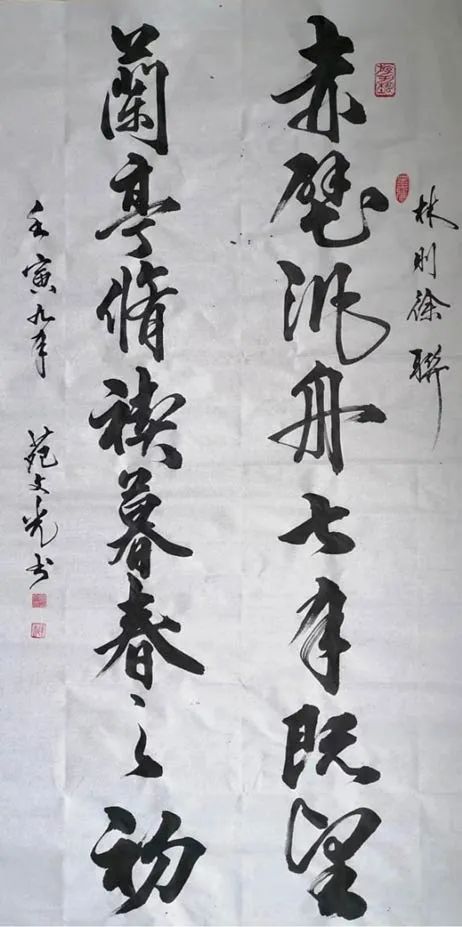 林则徐聯
赤壁泛舟七月既望
蘭亭脩禊暮春之初
壬寅九月 苑文光书